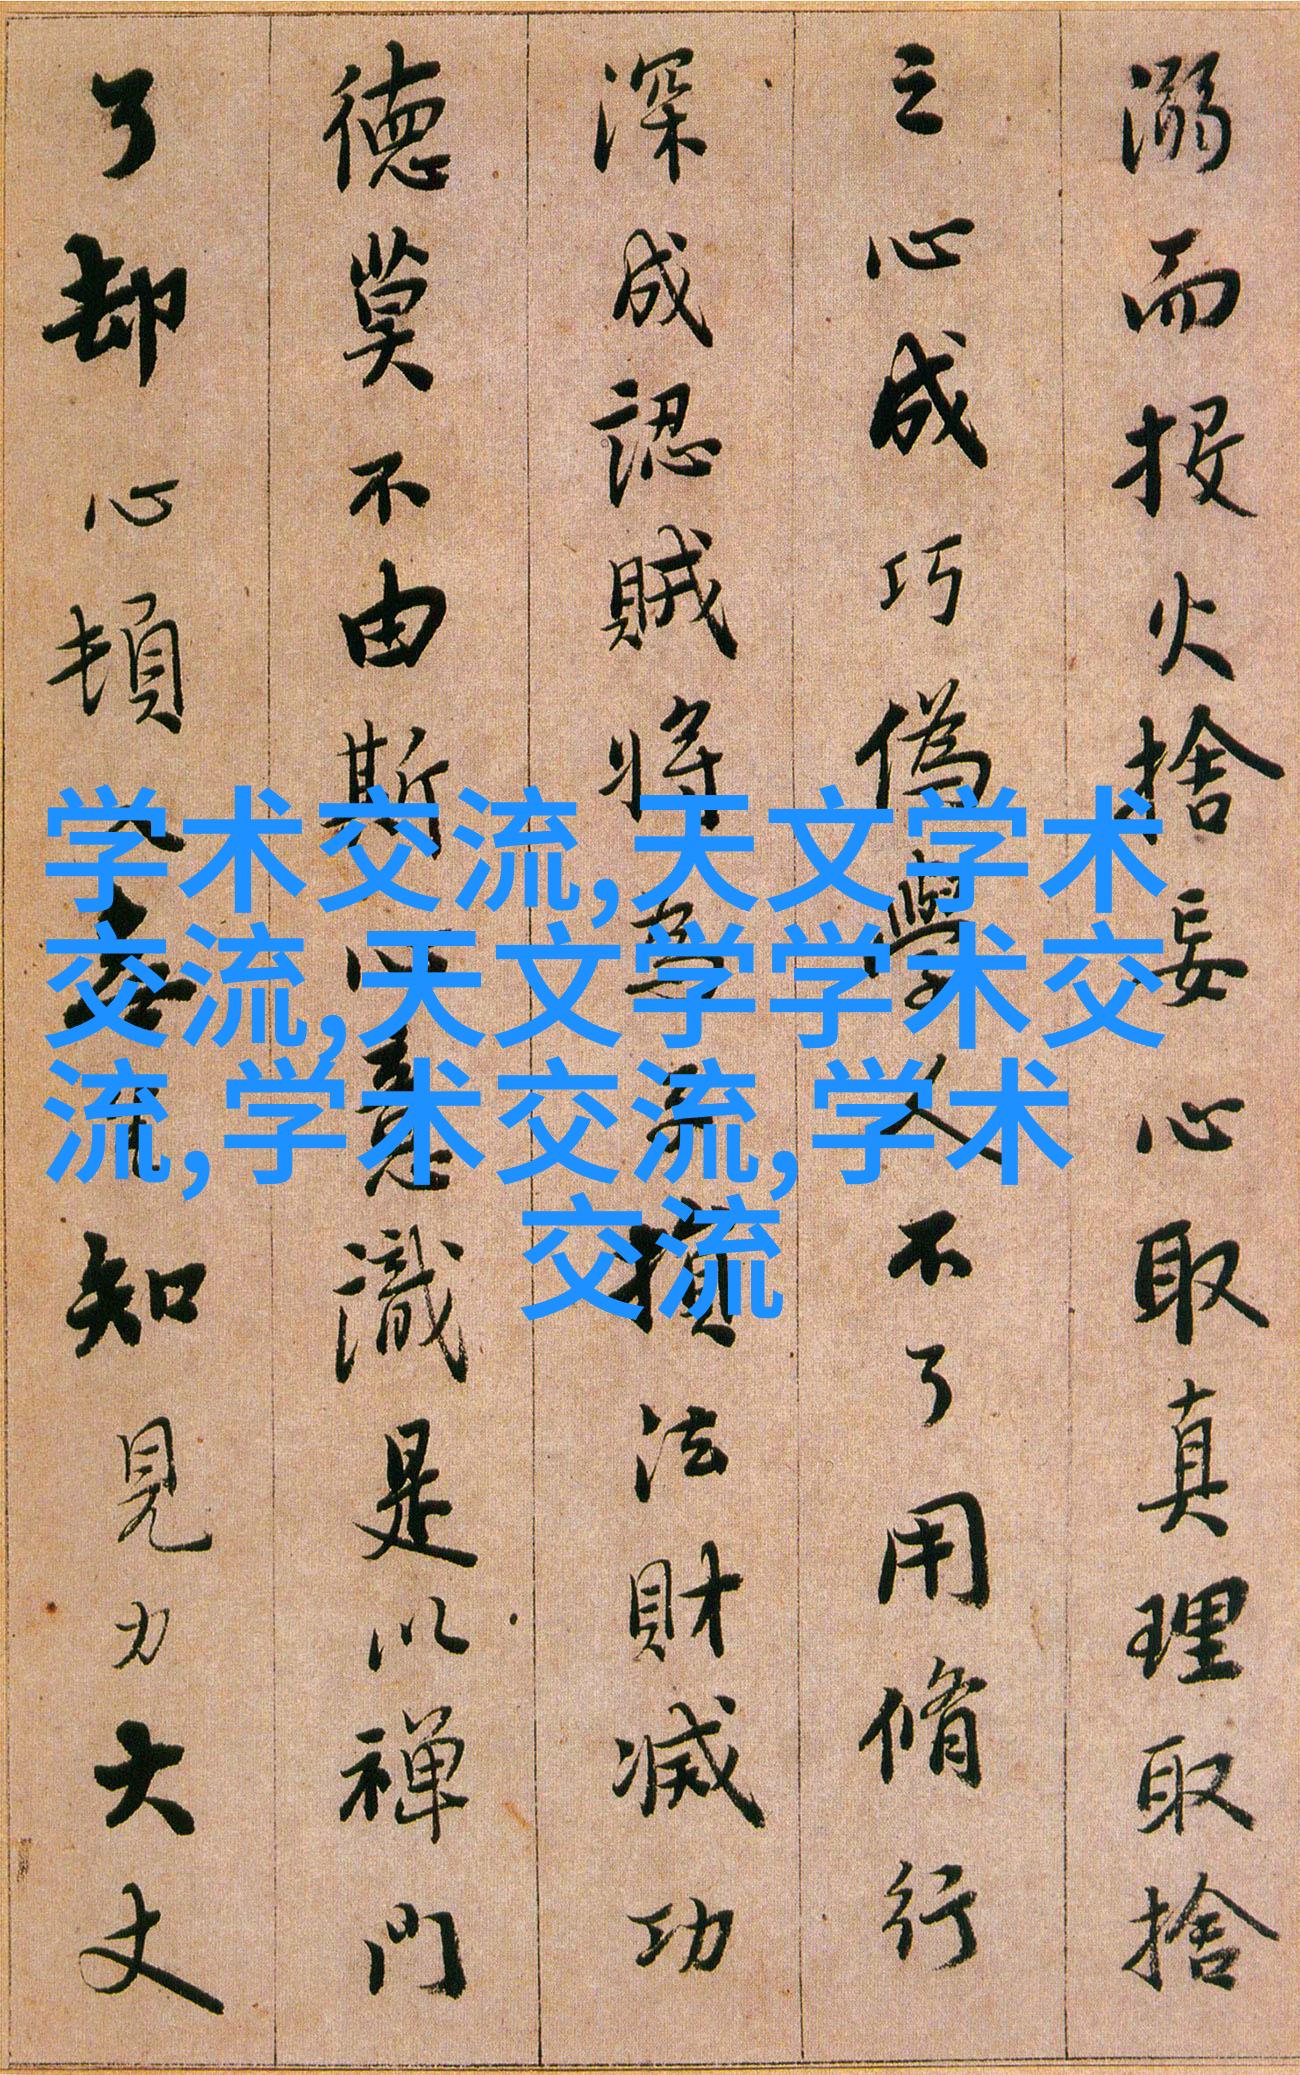 溺而投火捨妄心取真理取捨
之心成巧偽學人不了用脩行
深成認賊将為子損法財减功
德莫不由斯心意識是以禅門
了却心頓入無生知見力大丈
学术交流,天文学术
交流,天文学学术交
流,学术交流,学术
交流